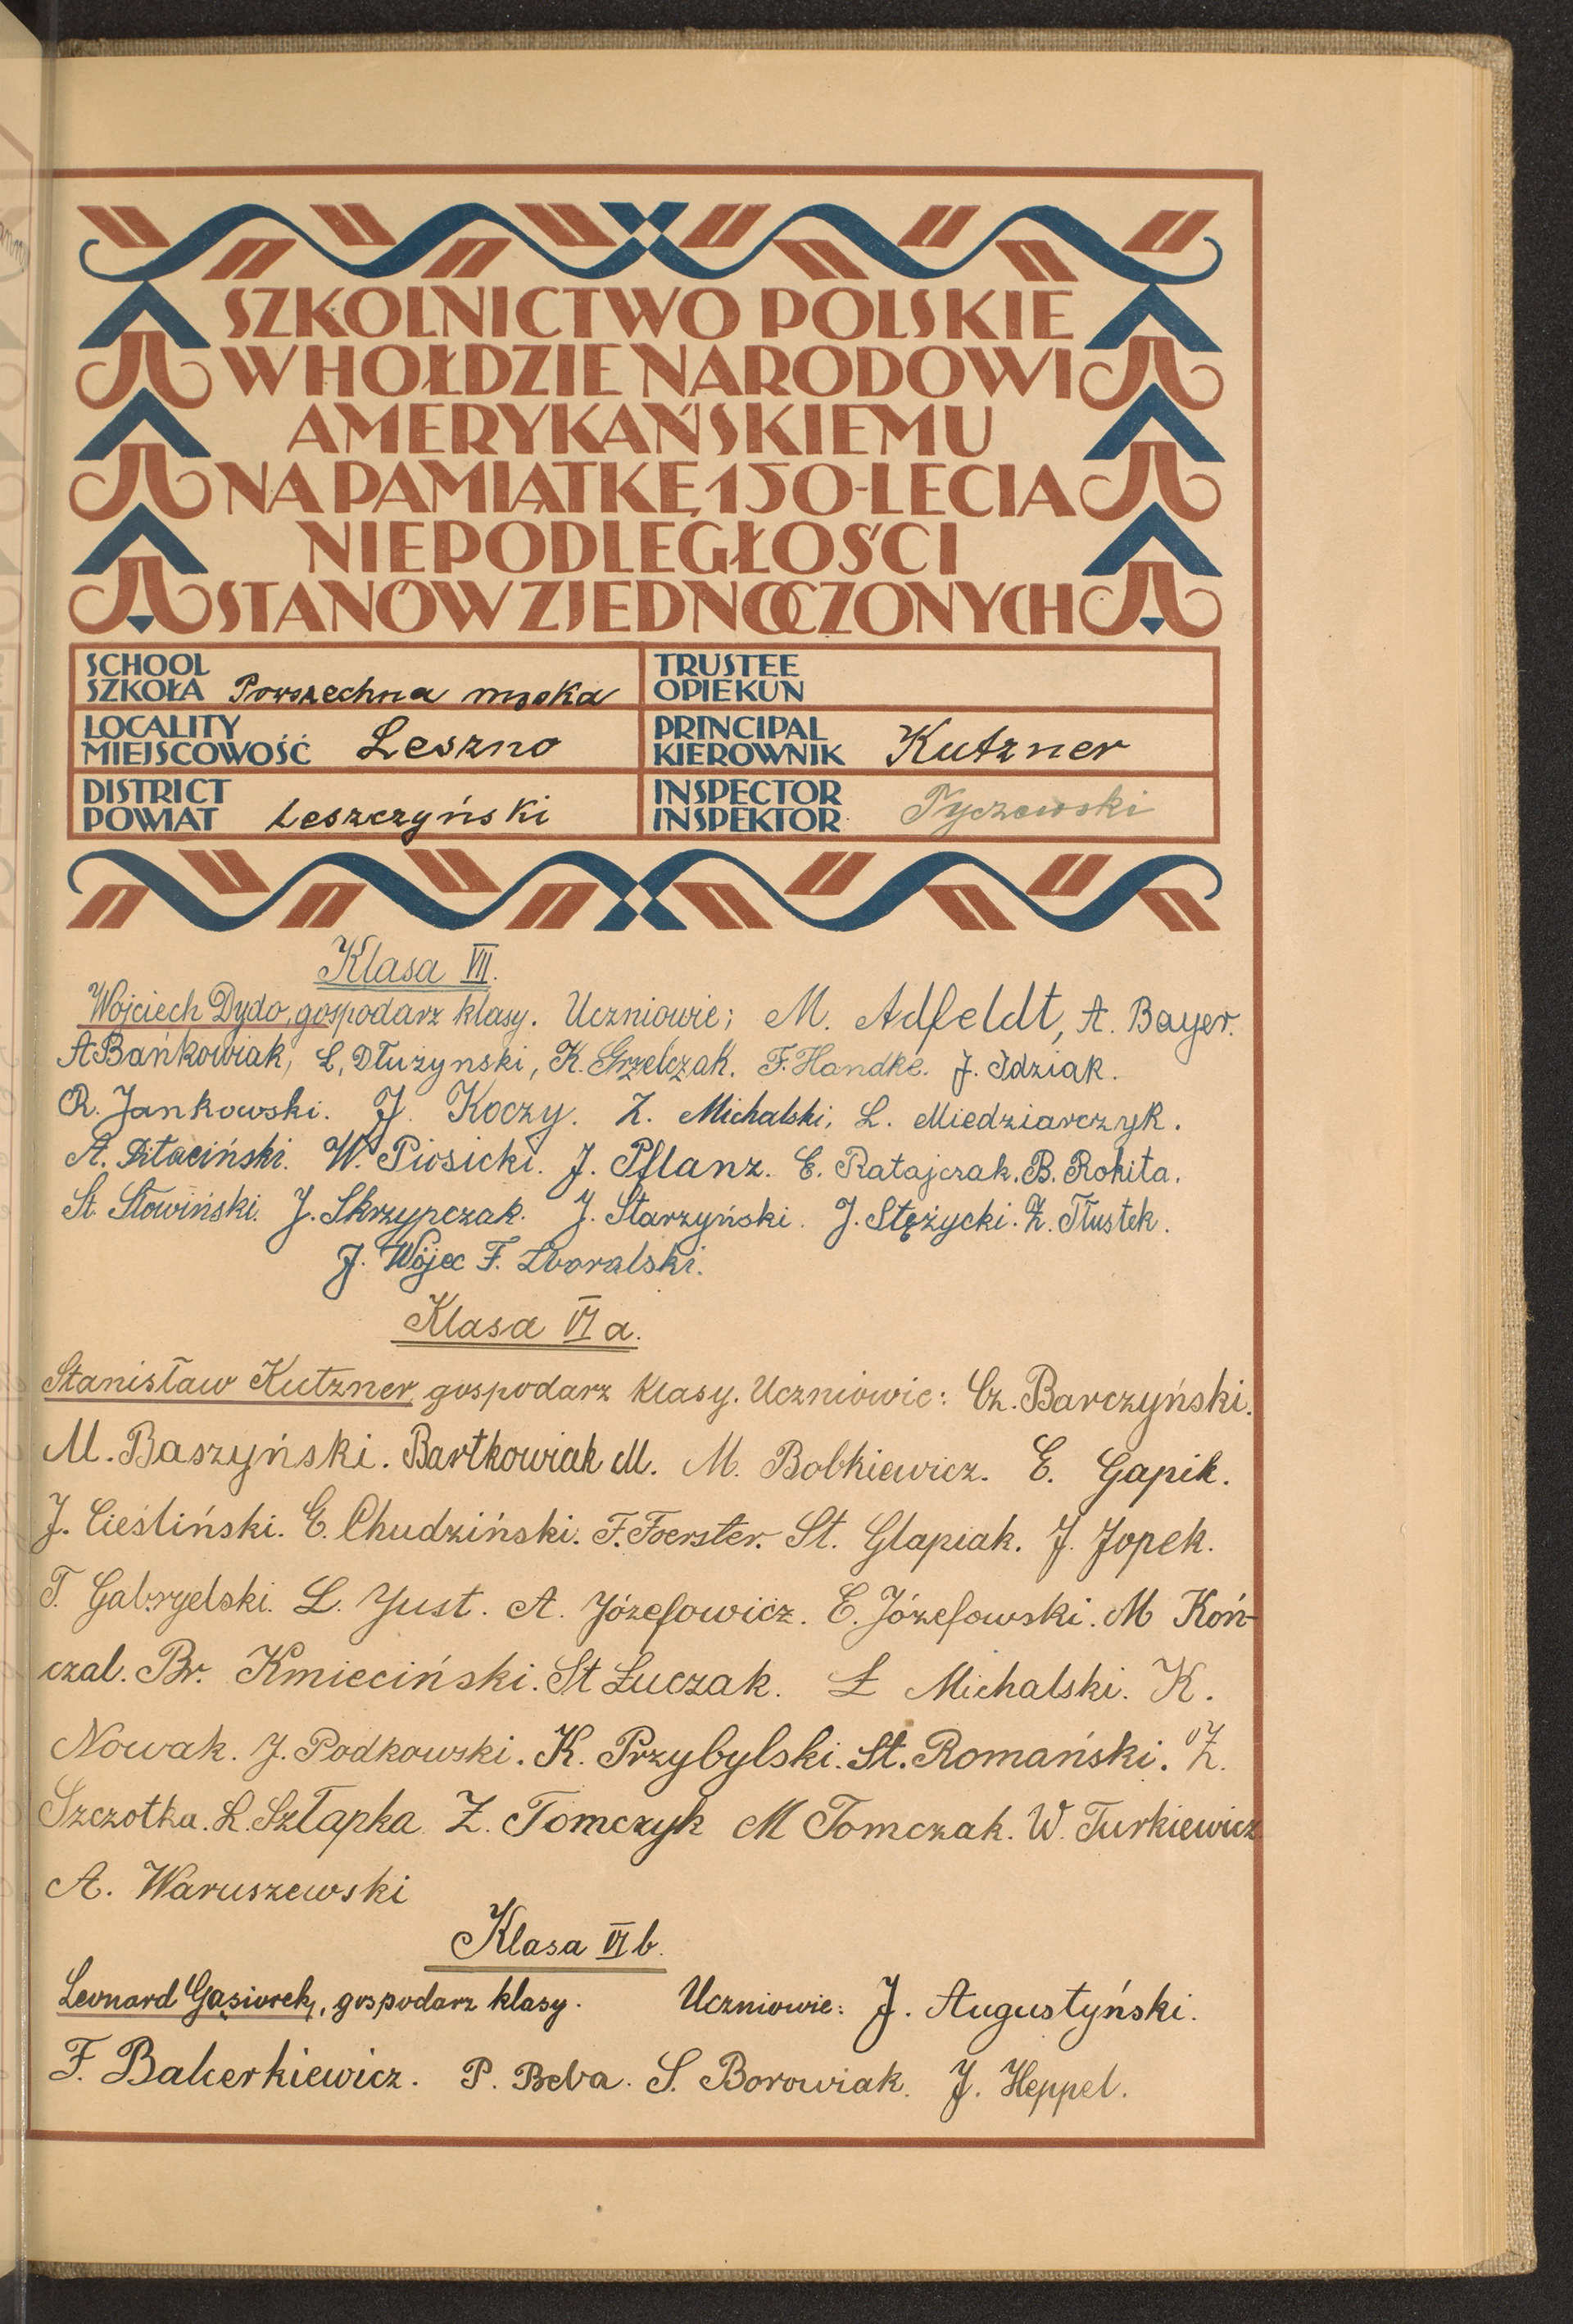 SZKOLNICTWO POLSKIE
W HOŁDZIE NARODOWI
AMERYKAŃSKIEMU
NA PAMIĄTKĘ 150-LECIA
NIEPODLEGŁOŚCI
STANÓW ZJEDNOCZONYCH
SCHOOL
SZKOŁA Powszechna męska
TRUSTEE
OPIEKUN
LOCALITY
MIEJSCOWOŚĆ Leszno
PRINCIPAL
KIEROWNIK Kutzner
DISTRICT
POWIAT Leszczyński
INSPECTOR
INSPEKTOR Tyczewski
Klasa VII.
Wojciech Dydo, gospodarz klasy. Uczniowie; M. Adfeldt, A. Bayer.
A Bańkowiak, L, Dłużynski, K. Grzelczak. F. Handke. J. Idziak.
R. Jankowski. J. Koczy. Z. Michalski, L. Miedziarczyk.
A. W. Piosicki. J. Pflanz. E. Ratajczak. B. Rokita.
St. Słowiński. J. Skrzypczak. J. Starzyński. J. Stężycki. Z. Tłustek.
J. Wójec F. Zboralski.
Klasa VI a.
Stanisław Kutzner gospodarz klasy. Uczniowie: Cz. Barczyński.
M. Baszyński. Bartkowiak M. M. Bobkiewicz. E. Gapik.
J. Cieśliński. E. Chudziński. F. Foerster. St. Glapiak. J. Jopek.
T. Gabryelski. L. Just. A. Józefowicz. E. Józefowski. M Koń-
czal. Br. Kmieciński. St Łuczak. Ł Michalski. K.
Nowak. J. Podkowski. K. Przybylski. St. Romański. Z.
Szczotka. L. Szłapka Z. Tomczyk M Tomczak. W. Turkiewicz
A. Waruszewski
Klasa VI b.
Leonard Gąsiorek, gospodarz klasy. Uczniowie: J. Augustyński.
F. Balcerkiewicz. P. Beba. S. Borowiak. J. Heppel.